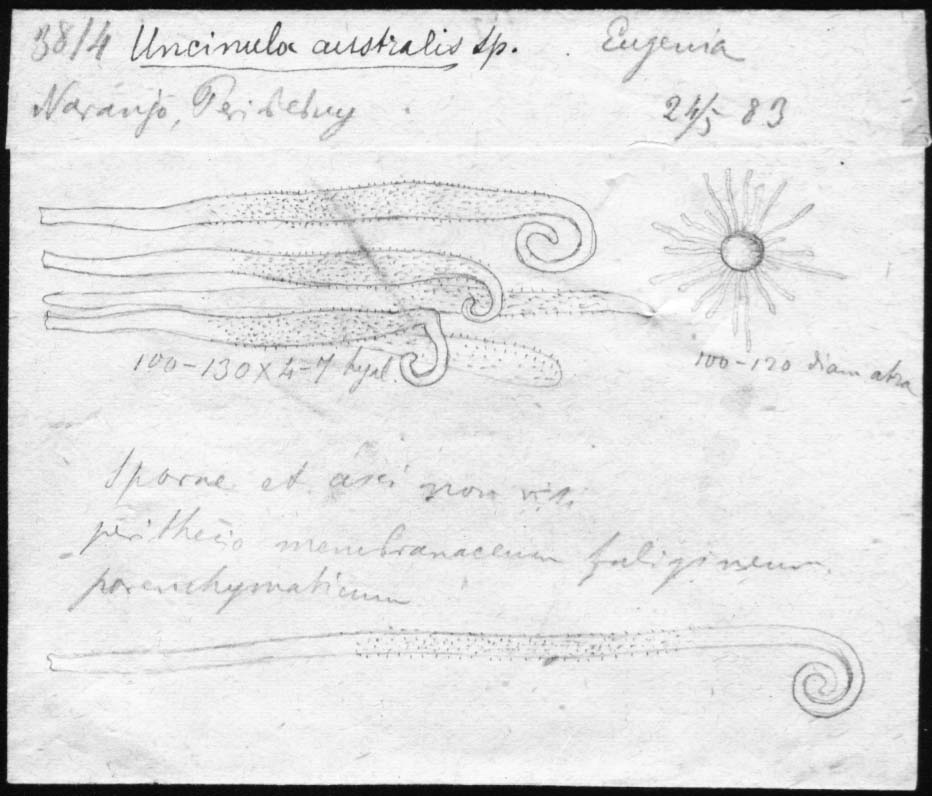 3814 Uncinula australis Sp. Eugenia
Naranjo, Peribebuy 24/5 83
100-130 x 4-7 hyal.
100-120 diam atra
Sporae et asci non visi
perithecio membranaceum fuligineum
parenchymaticum